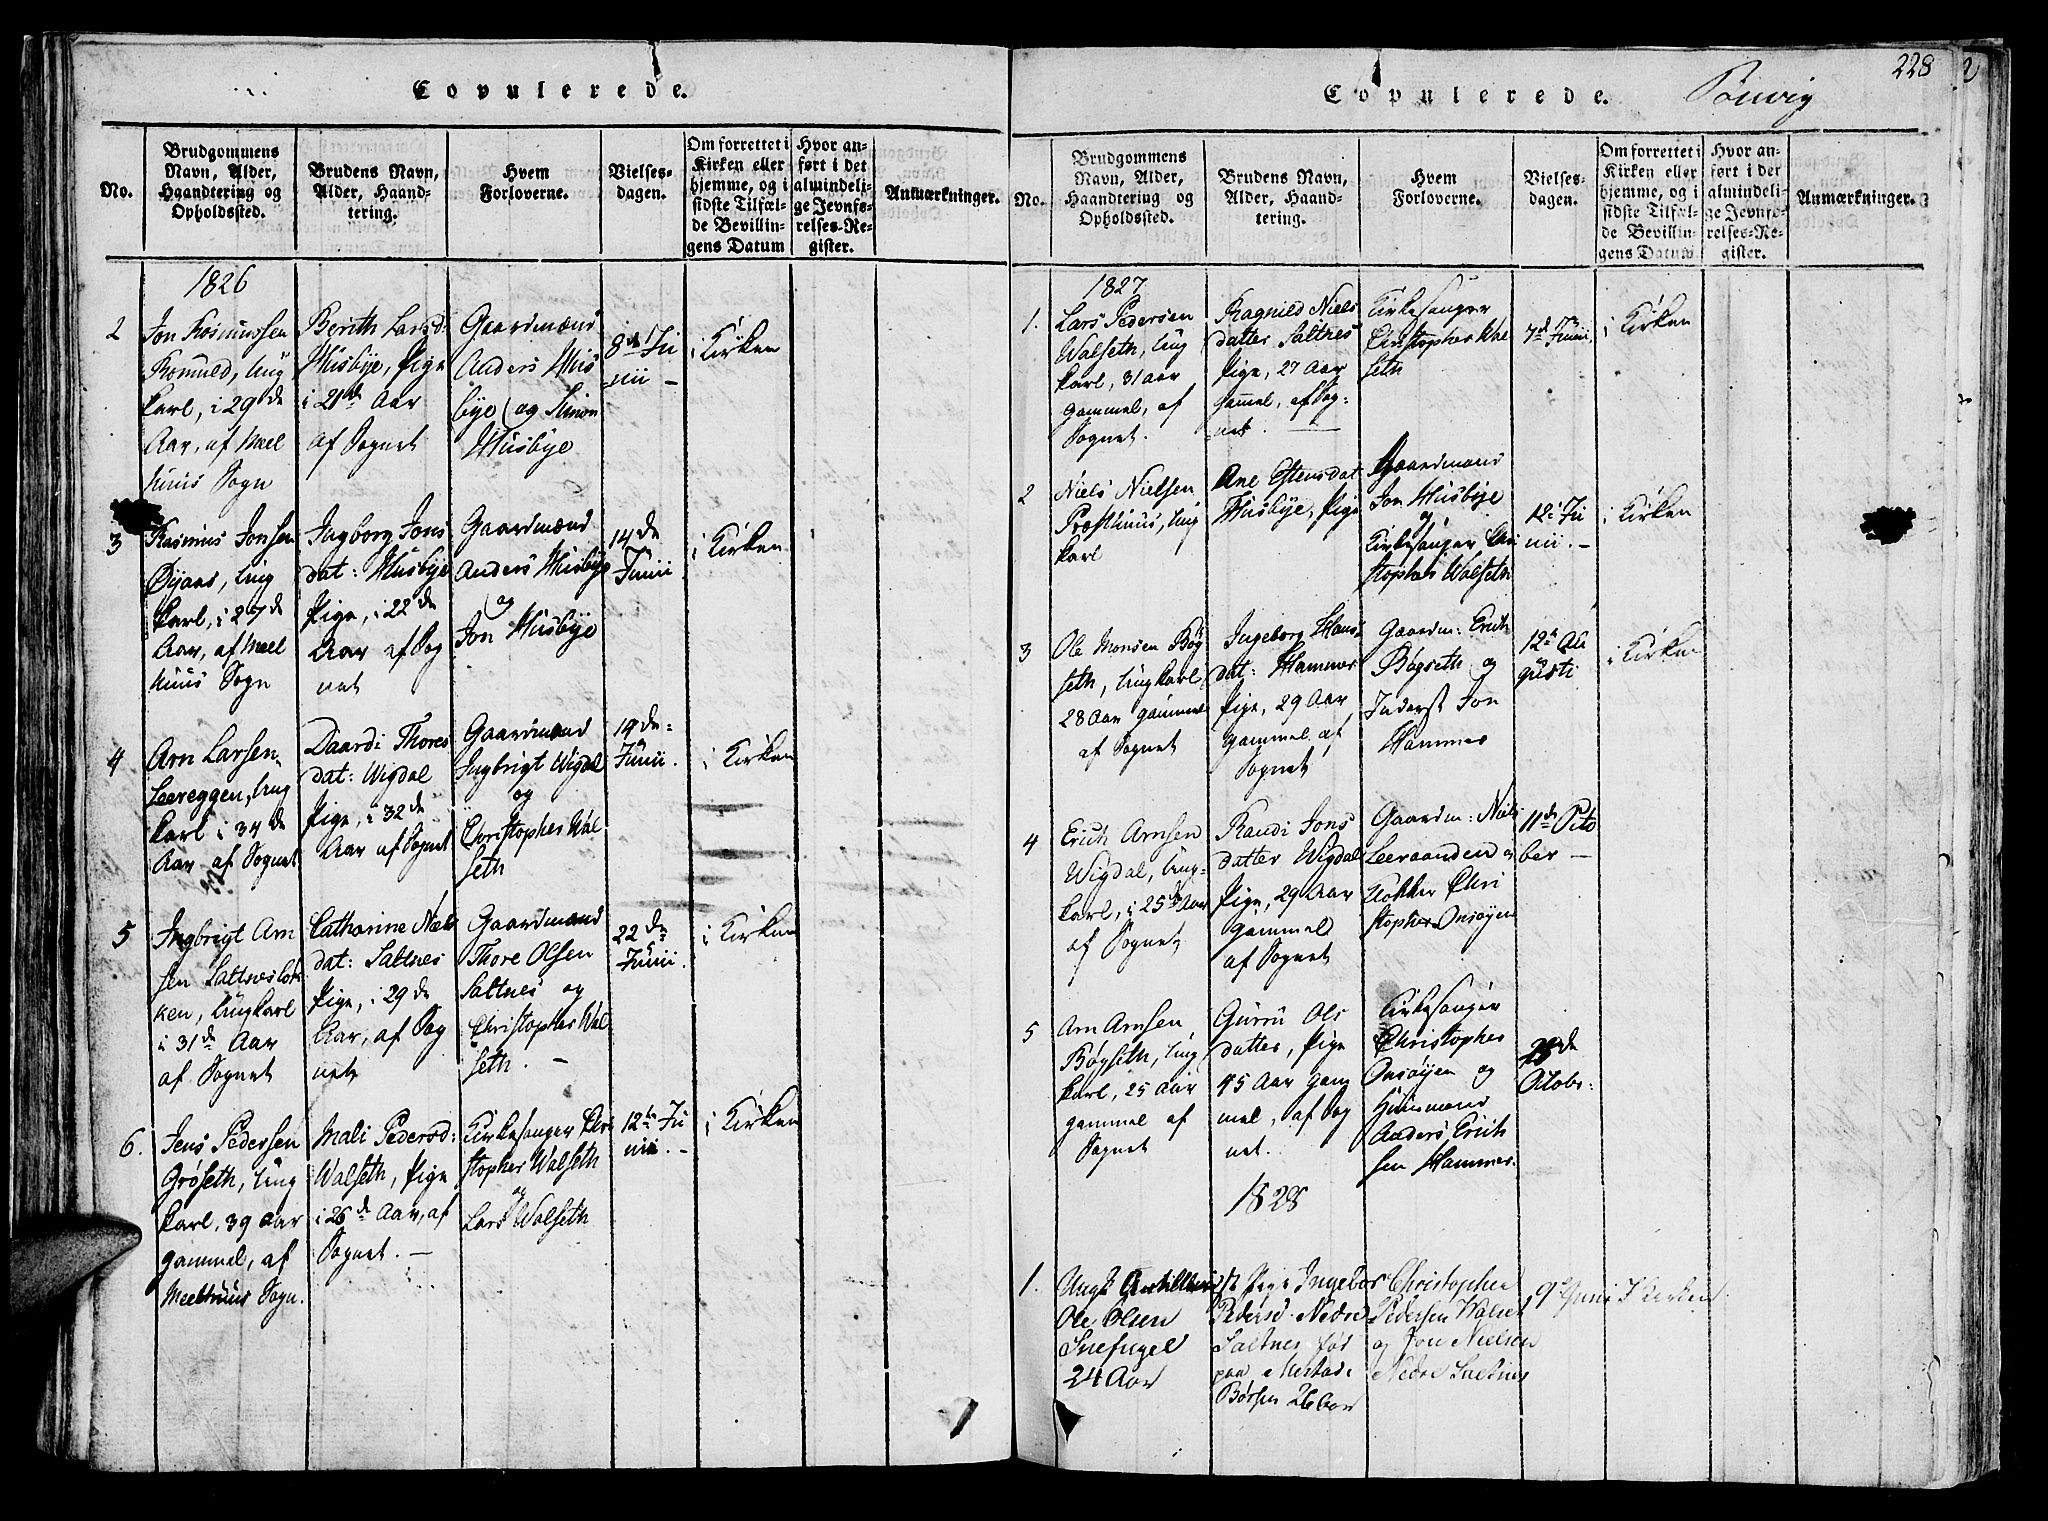 Copulerede.
No.
Brudgommens
Navn, Alder,
Haandtering og
Opholdssted.
Brudens Navn,
Alder, Haand-
tering.
Hvem
Forloverne.
Vielses-
dagen.
Om forrettet i
Kirken eller
hjemme, og i
sidste Tilfæl-
de Bevillin-
gens Datum
Hvor an-
ført i det
almindeli-
ge Jevnfø-
relses-Re-
gister.
Anmærkninger.
1826
2
Jon Rasmussen
Romuld, Ung
karl, i 29de
Aar, af Meel
huus Sogn
Berith Larsd:
Husbye, Pige
i 21de Aar
af Sognet
Gaardmænd
Anders Hus
bye og Simon
Husbye
8de Ju
nii -
i Kirken
3
Rasmus Jonsen
Øyaas, Ung
karl, i 27de
Aar, af Meel
huus Sogn
Ingborg Jons
dat: Husbye
Pige, i 22de
Aar af Sog
net
Gaardmænd
Anders Husbye
og
Jon Husbye
14de
Junii
i Kirken
4
Arn Larsen
Leereggen, Ung
karl i 34de
Aar af Sognet
Daardi Thores
dat: Wigdal
Pige, i 32de
Aar af Sognet
Gaardmænd
Ingbrigt Wigdal
og
Christopher Wal
seth
19de
Junii.
i Kirken
5
Ingbrigt Arn
sen Saltnesløk
ken, Ungkarl
i 31de Aar
af Sognet
Catharine Niels
dat: Saltnes
Pige, i 29de
Aar, af Sog
net
Gaardmænd
Thore Olsen
Saltnes og
Christopher Wal
seth. -
22de
Junii.
i Kirken
6.
Jens Pedersen
Grøseth, Ung
karl, 39 Aar
gammel, af
Meelhuus Sogn.
Mali Pedersd:
Walseth, Pige
i 26de Aar, af
Sognet. -
Kirkesanger Chri
stopher Walseth
og
Lars Walseth
12te Ju
nii. -
i Kirken
Copulerede.
228
No.
Brudgommens
Navn, Alder,
Haandtering og
Opholdssted.
Brudens Navn,
Alder, Haand-
tering.
Hvem
Forloverne.
Vielses-
dagen.
Om forrettet i
Kirken eller
hjemme, og i
sidste Tilfæl-
de Bevillin-
gens Datum
Hvor an-
ført i det
almindeli-
ge Jevnfø-
relses-Re-
gister.
Anmærkninger.
1827
1.
Lars Pedersen
Walseth, Ung
karl, 31 Aar
gammel, af
Sognet.
Ragnild Niels
datter Saltnes
Pige, 27 Aar
gammel, af Sog-
net.
Kirkesanger
Christopher Wal
seth
7de Junii,
i Kirken
2
Niels Nielsen
Præsthuus, Ung
karl
Ane Estensdat
Husbye, Pige
Gaardmand
Jon Husbye
og
Kirkesanger Chri
stopher Walseth
12te Ju
nii. -
i Kirken
3
Ole Monsen Bøg
seth, Ungkarl
28 Aar gammel
af Sognet
Ingeborg Hans
dat: Hammer
Pige, 29 Aar
gammel af
Sognet
Gaardm: Erich
Bøgseth og
Inderst Jon
Hammer
12te Au
gusti
i Kirken
4
Erich Arnsen
Wigdal, Ung-
karl, i 25de Aar
af Sognet
Randi Jons
datter Wigdal
Pige, 29 Aar
gammel
af Sognet
Gaardm: Niels
Leeraanden og
Klokker Chri
stopher Onsøyen
11de Octo
ber -
5
Arn Arnsen
Bøgseth, Ung
karl, 25 Aar
gammel af
Sognet
Gurru Ols
datter, Pige
45 Aar gam
mel, af Sog
net.
Kirkesanger
Christopher
Onsøyen og
Huusmand
Anders Erich
sen Hammer.
de
Octobr:
1828
1.
Ole Olsen
Snefugel
24 Aar
Pige Ingebor
Pedersd. Nedre
Saltnes fød
paa
Børsen 26 Aar
Christopher
Pedersen Walset
og Jon Nielsen
Nedre Saltnes
9de Juni
I Kirken.